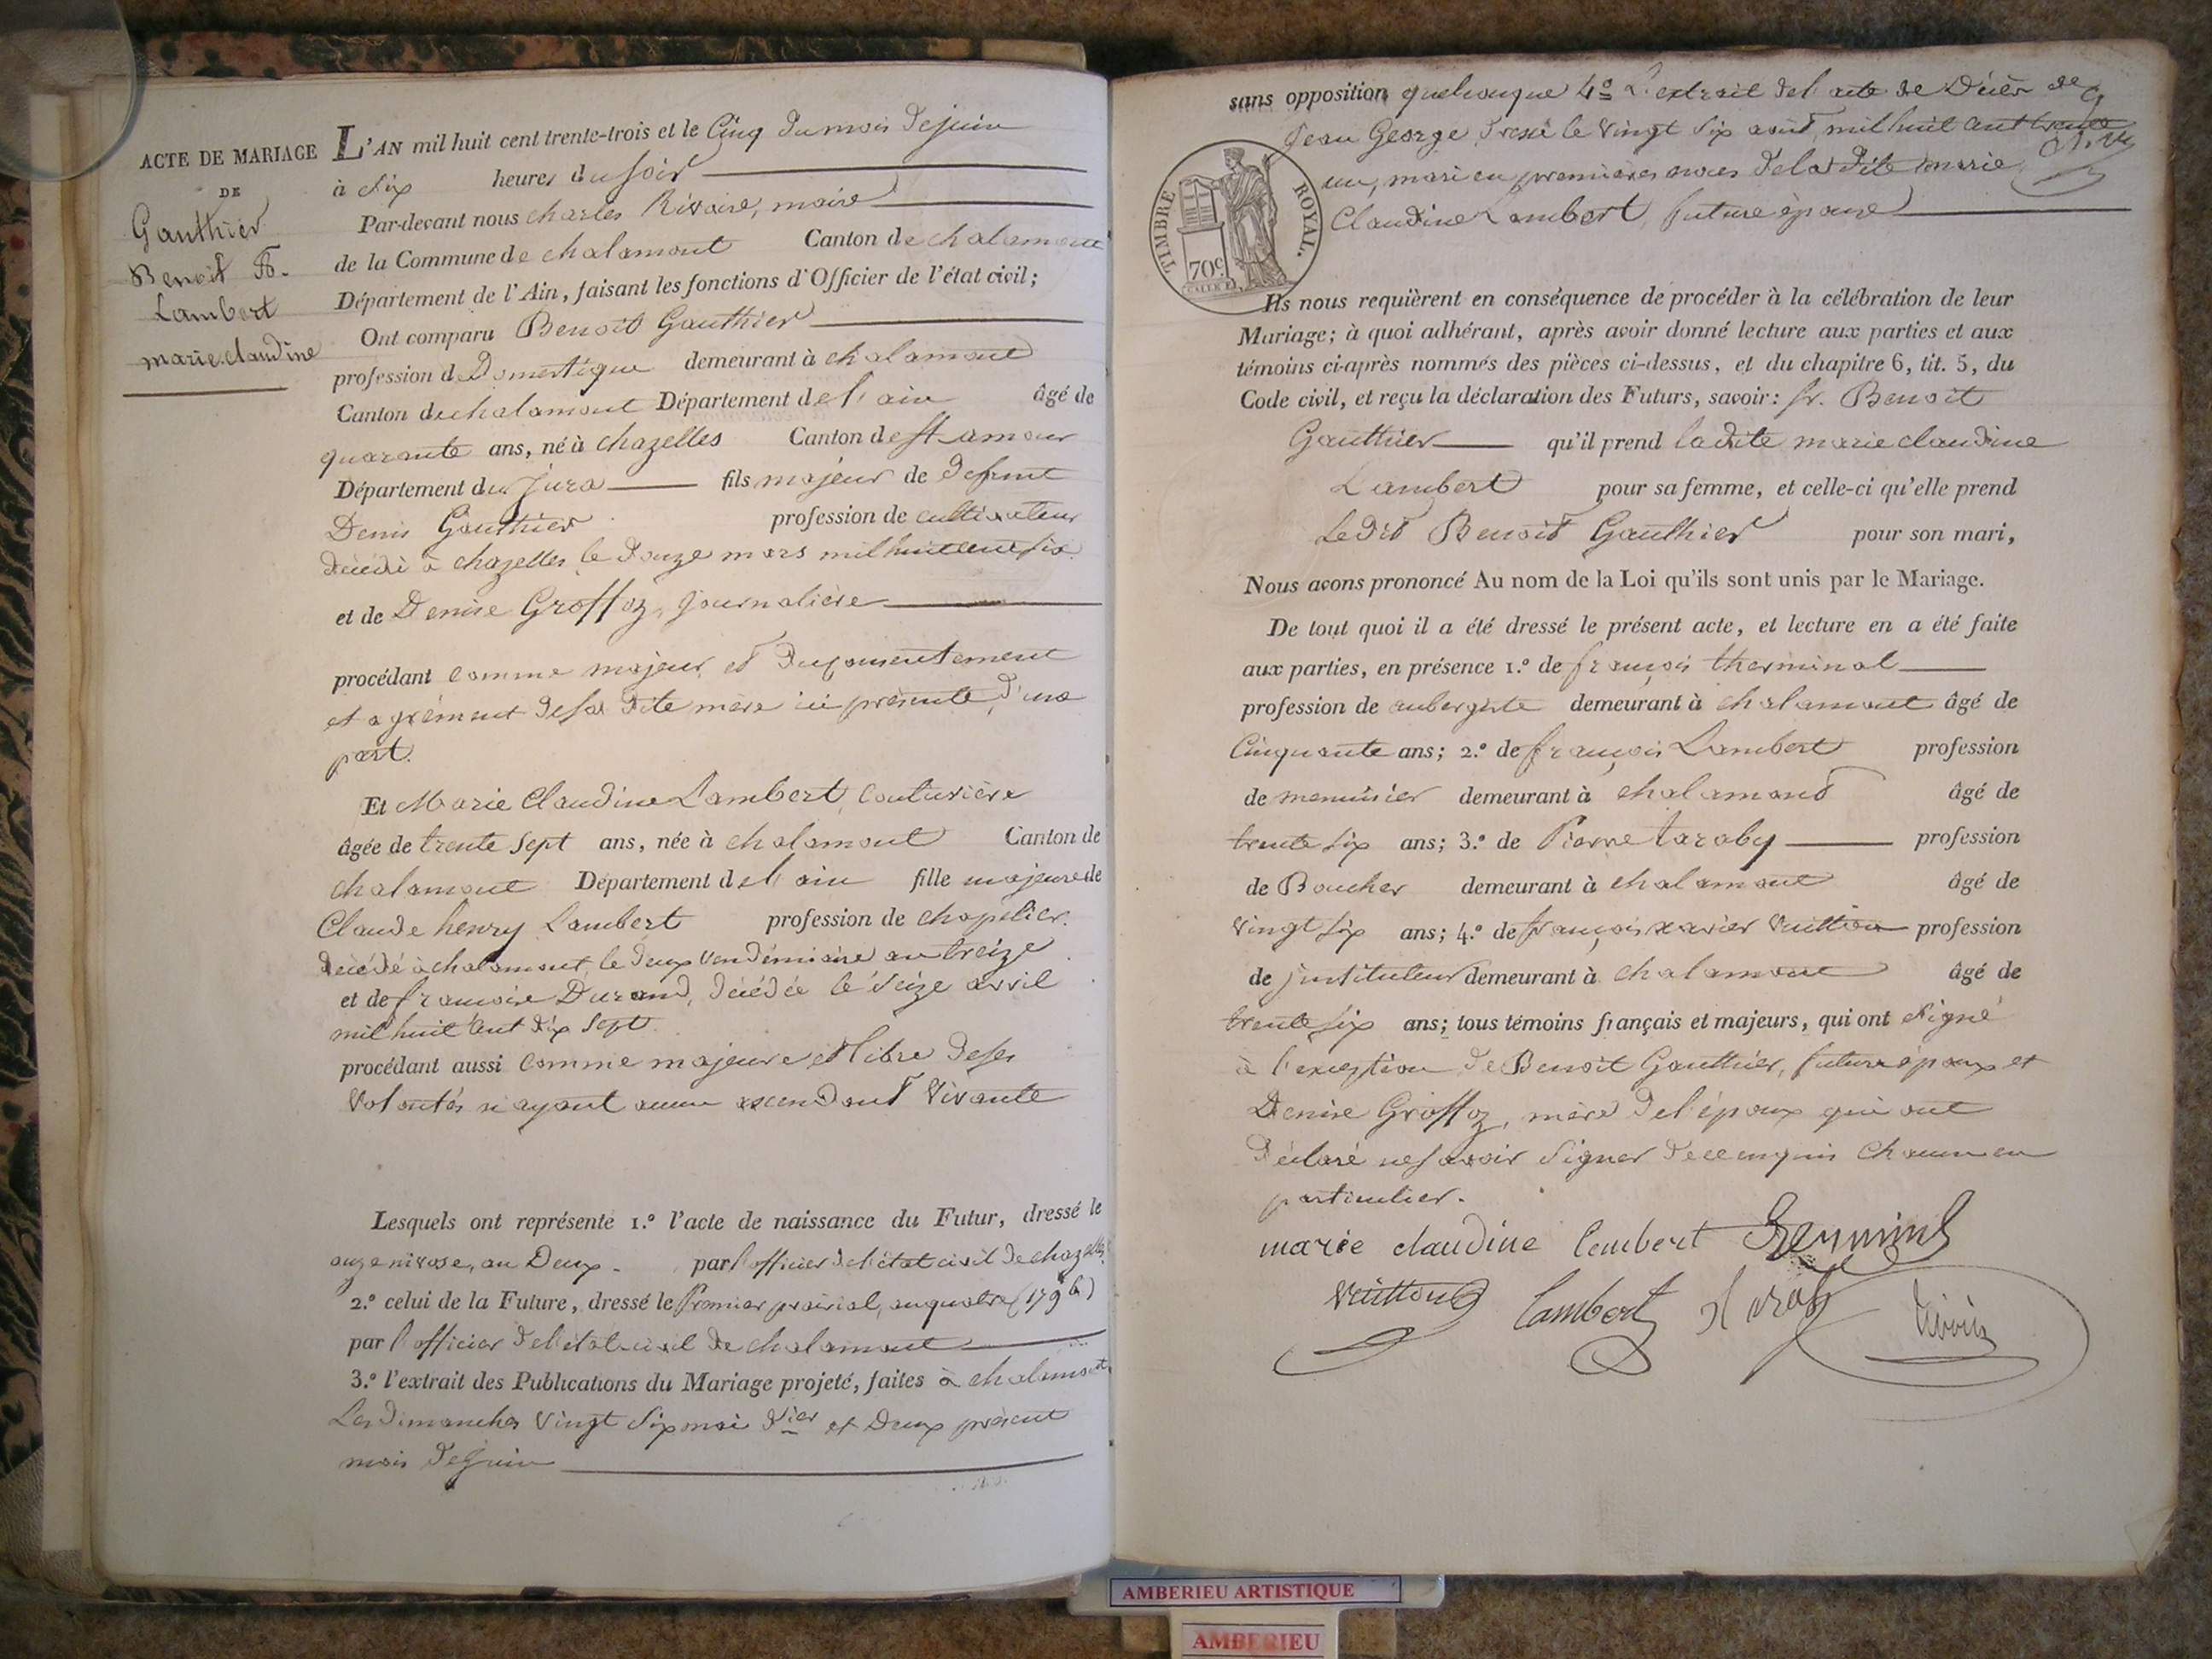 ACTE DE MARIAGE
DE
Gauthier
Benoit &.
Lambert
marie claudine
L'AN mil huit cent trente-trois et le Cinq du mois de juin
à six heures du soir
Par-devant nous charles Rivoire, maire
de la Commune de chalamont Canton de chalamont
Département de l'Ain, faisant les fonctions d'Officier de l'état civil;
Ont comparu Benoit Gauthier
profession de Domestique demeurant à chalamont
Canton de chalamont Département de l'ain âgé de
quarante ans, né à chazelles Canton de st amour
Département du jura fils majeur de defunt
Denis Gauthier profession de cultivateur
décédé à chazelles le Douze mars mil huit cent six
et de Denise Groffoz, journalière
procédant comme majeur et du consentement
et agrément de sa dite mère ici présente, d'une
part.
Et Marie Claudine Lambert, couturière
âgée de trente sept ans, née à chalamont Canton de
chalamont Département de l'ain fille majeure de
Claude henry Lambert profession de chapelier
décédé à chalamont, le deux vendémiaire an treize
et de françoise Durand, décédée le seize avril
mil huit cent dix sept
procédant aussi comme majeure et libre de ses
volontés n'ayant aucun ascendant vivante
Lesquels ont représente 1.º l'acte de naissance du Futur, dressé le
onze nivose, an Deux. par l'officier de l'état civil de chazelles
2.º celui de la Future, dressé le premier prairial, an quatre (1796)
par l'officier de l'état civil de chalamont
3.º l'extrait des Publications du Mariage projeté, faites à chalamont
Les dimanches vingt six mai d.ier et Deux présent
mois de juin
sans opposition quelconque 4º L'extrait de l'acte de Décès de
Jean George le vingt six août mil huit cent trente
un, mari en premières noces de la dite marie
Claudine Lambert, future épouse
TIMBRE ROYAL.
70c
Ils nous requièrent en conséquence de procéder à la célébration de leur
Mariage; à quoi adhérant, après avoir donné lecture aux parties et aux
témoins ci-après nommés des pièces ci-dessus, et du chapitre 6, tit. 5, du
Code civil, et reçu la déclaration des Futurs, savoir: sr. Benoit
Gauthier qu'il prend la dite marie claudine
Lambert pour sa femme, et celle-ci qu'elle prend
Ledit Benoit Gauthier pour son mari,
Nous avons prononcé Au nom de la Loi qu'ils sont unis par le Mariage.
De tout quoi il a été dressé le présent acte, et lecture en a été faite
aux parties, en présence 1.º de françois therminal
profession de aubergiste demeurant à chalamont âgé de
Cinquante ans; 2.º de françois Lambert profession
de menuisier demeurant à chalamont âgé de
trente six ans; 3.º de Pierre taraby profession
de Boucher demeurant à chalamont âgé de
vingt six ans; 4.º de françois xavier Vuitton profession
de instituteur demeurant à chalamont âgé de
trente six ans; tous témoins français et majeurs, qui ont signé
à l'exception de Benoit Gauthier, futur époux et
Denise Groffoz, mère de l'époux qui ont
déclaré ne savoir signer de ce enquis chacun en
particulier.
marie claudine lambert
Vuitton lambert
AMBERIEU ARTISTIQUE
AMBERIEU